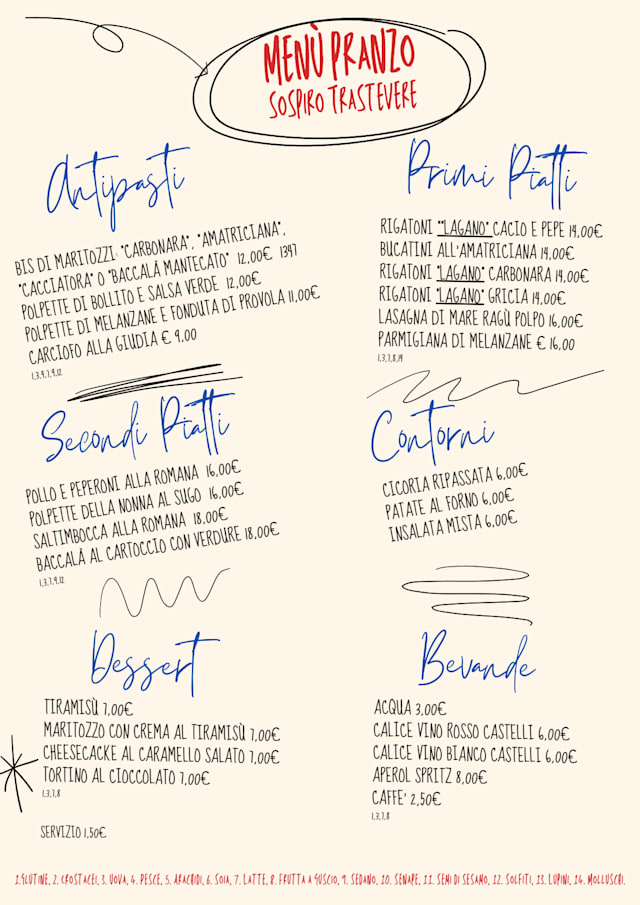 MENÙ PRANZO
SOSPIRO TRASTEVERE
Antipasti
BIS DI MARITOZZI: "CARBONARA", "AMATRICIANA",
"CACCIATORA" O "BACCALÀ MANTECATO" 12,00€ 1347
POLPETTE DI BOLLITO E SALSA VERDE 12,00€
POLPETTE DI MELANZANE E FONDUTA DI PROVOLA 11,00€
CARCIOFO ALLA GIUDIA € 9,00
1,3,9,7,9,12
Primi Piatti
RIGATONI "LAGANO" CACIO E PEPE 14,00€
BUCATINI ALL'AMATRICIANA 14,00€
RIGATONI "LAGANO" CARBONARA 14,00€
RIGATONI "LAGANO" GRICIA 14,00€
LASAGNA DI MARE RAGÙ POLPO 16,00€
PARMIGIANA DI MELANZANE € 16,00
1,3,7,8,14
Secondi Piatti
POLLO E PEPERONI ALLA ROMANA 16,00€
POLPETTE DELLA NONNA AL SUGO 16,00€
SALTIMBOCCA ALLA ROMANA 18,00€
BACCALÀ AL CARTOCCIO CON VERDURE 18,00€
1,3,7,9,12
Contorni
CICORIA RIPASSATA 6,00€
PATATE AL FORNO 6,00€
INSALATA MISTA 6,00€
Dessert
TIRAMISÙ 7,00€
MARITOZZO CON CREMA AL TIRAMISÙ 7,00€
CHEESECACKE AL CARAMELLO SALATO 7,00€
TORTINO AL CIOCCOLATO 7,00€
1,3,7,8
SERVIZIO 1,50€
Bevande
ACQUA 3,00€
CALICE VINO ROSSO CASTELLI 6,00€
CALICE VINO BIANCO CASTELLI 6,00€
APEROL SPRITZ 8,00€
CAFFE' 2,50€
1,3,7,8
1.GLUTINE, 2. CROSTACEI, 3. UOVA, 4. PESCE, 5. ARACHIDI, 6. SOIA, 7. LATTE, 8. FRUTTA A GUSCIO, 9. SEDANO, 10. SENAPE, 11. SEMI DI SESAMO, 12. SOLFITI, 13. LUPINI, 14. MOLLUSCHI.